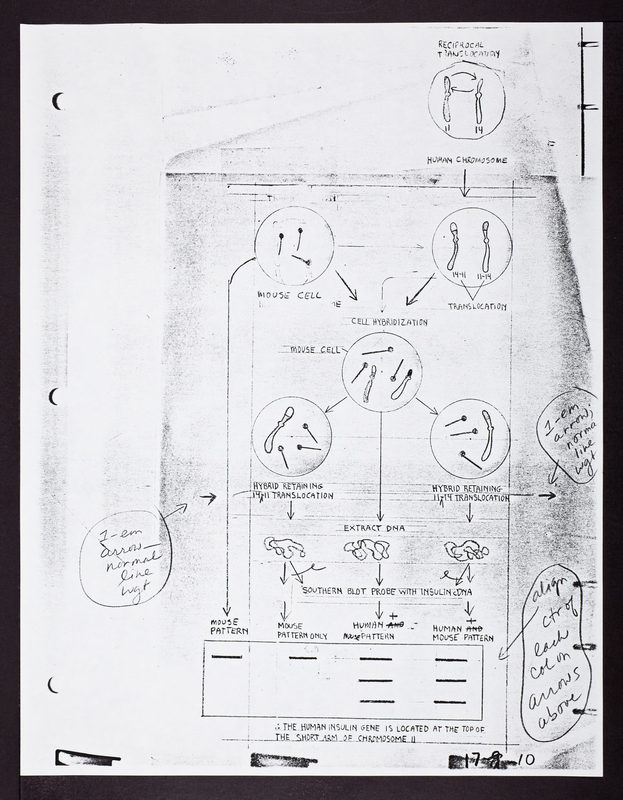 RECIPROCAL
TRANSLOCATION
11 14
HUMAN CHROMOSOME
14-11 11-14
MOUSE CELL
TRANSLOCATION
CELL HYBRIDIZATION
MOUSE CELL
1-em
arrow;
normal
line
wgt
HYBRID RETAINING
14-11 TRANSLOCATION
HYBRID RETAINING
11-14 TRANSLOCATION
1-em
arrow—
normal
line
wgt
EXTRACT DNA
SOUTHERN BLOT PROBE WITH INSULIN cDNA
align
ctr of
each
col on
arrows
above
MOUSE
PATTERN
MOUSE
PATTERN ONLY
HUMAN AND +
mouse PATTERN
HUMAN AND +
MOUSE PATTERN
∴ THE HUMAN INSULIN GENE IS LOCATED AT THE TOP OF
THE SHORT ARM OF CHROMOSOME 11
17-9 10